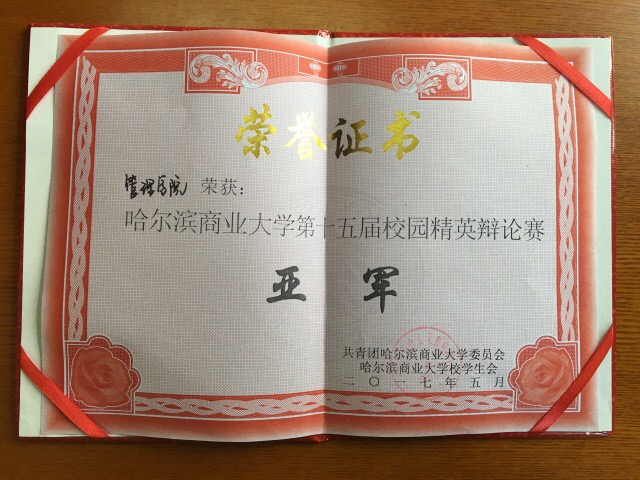 荣誉证书
管理学院 荣获：
哈尔滨商业大学第十五届校园精英辩论赛
亚军
共青团哈尔滨商业大学委员会
哈尔滨商业大学校学生会
二〇一七年五月